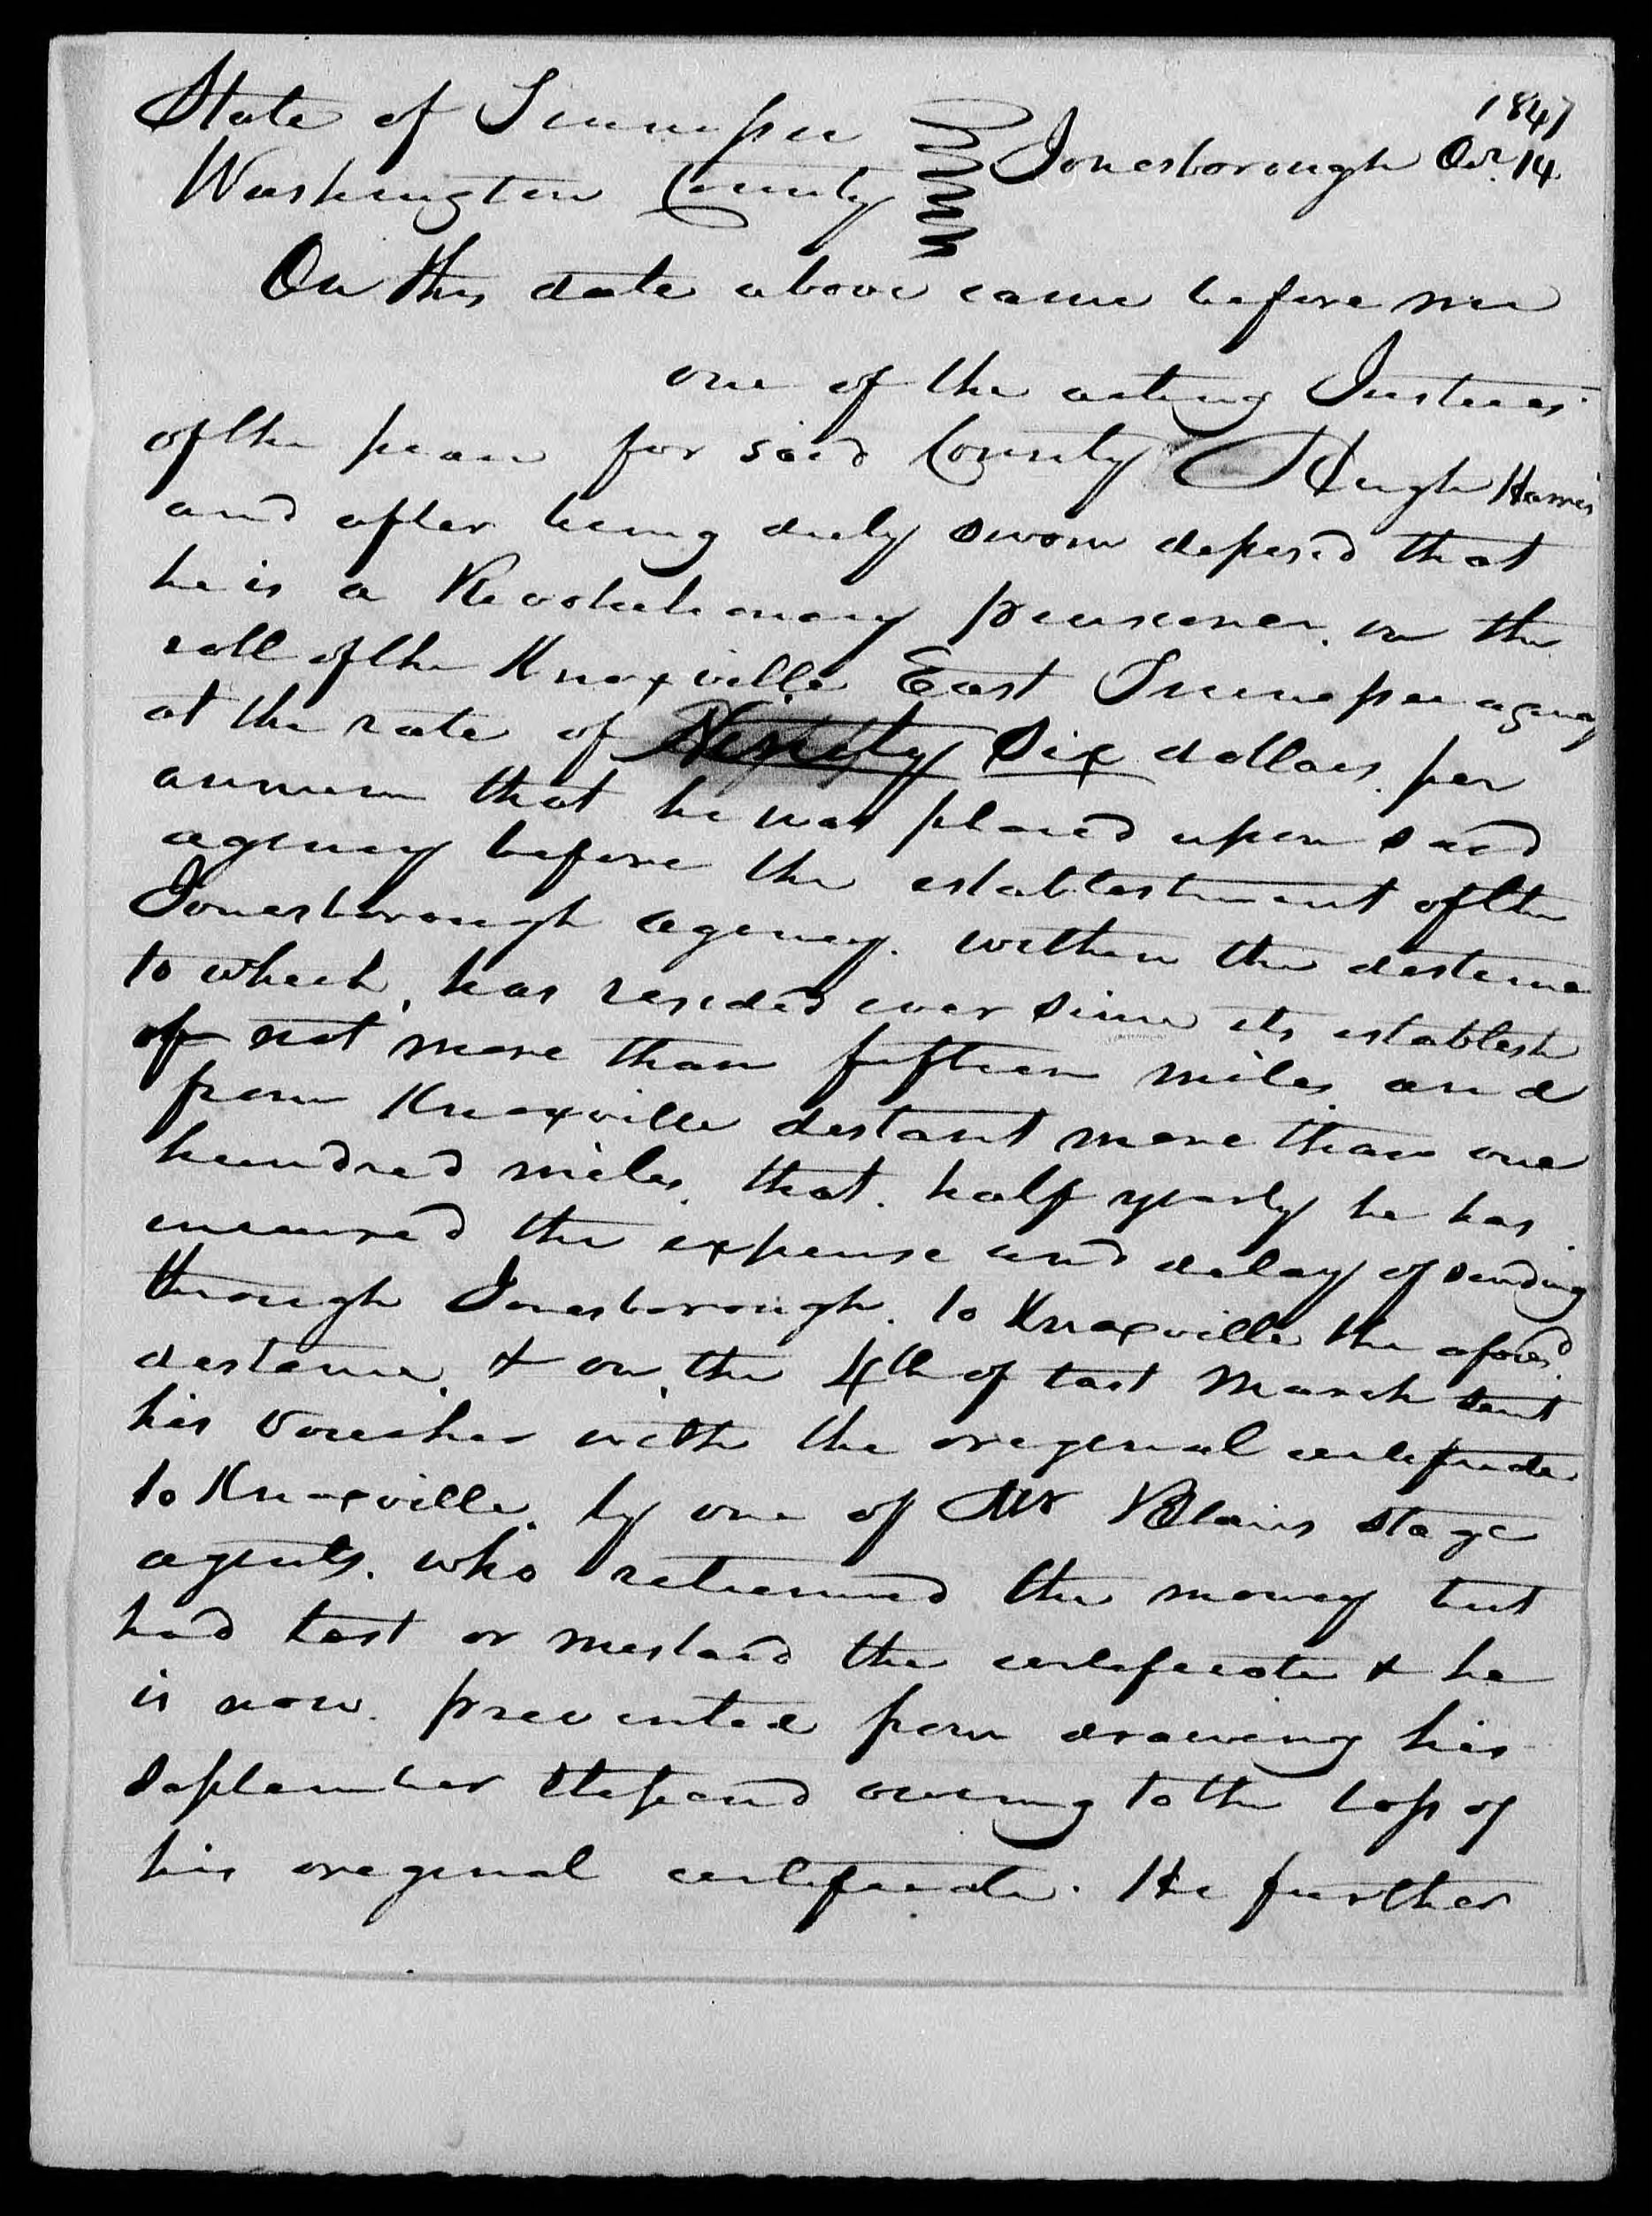 State of Tennessee
Washington County
1847
Jonesborough Oct. 14
On this date above came before me
one of the acting Justices
of the peace for said County Hugh Harris
and after being duly sworn deposed that
he is a Revolutionary pensioner on the
roll of the Knoxville East Tennessee agency
at the rate of Ninety Six dollars per
annum that he was placed upon said
agency before the establishment of the
Jonesborough agency. within the distance
to which, has resided ever since its establish
of not more than fifteen miles and
from Knoxville distant more than one
hundred miles. that. half yearly he has
incurred the expense and delay of sending
through Jonesborough. to Knoxville the afores'd
distance, & on the 4th of last March sent
his voucher with the original certificate
to Knoxville. by one of Mr Blairs stage
agents. who returned the money but
had lost or mislaid the certificate & he
is now. prevented from drawing his
September stipend owing to the loss of
his original certificate. He further